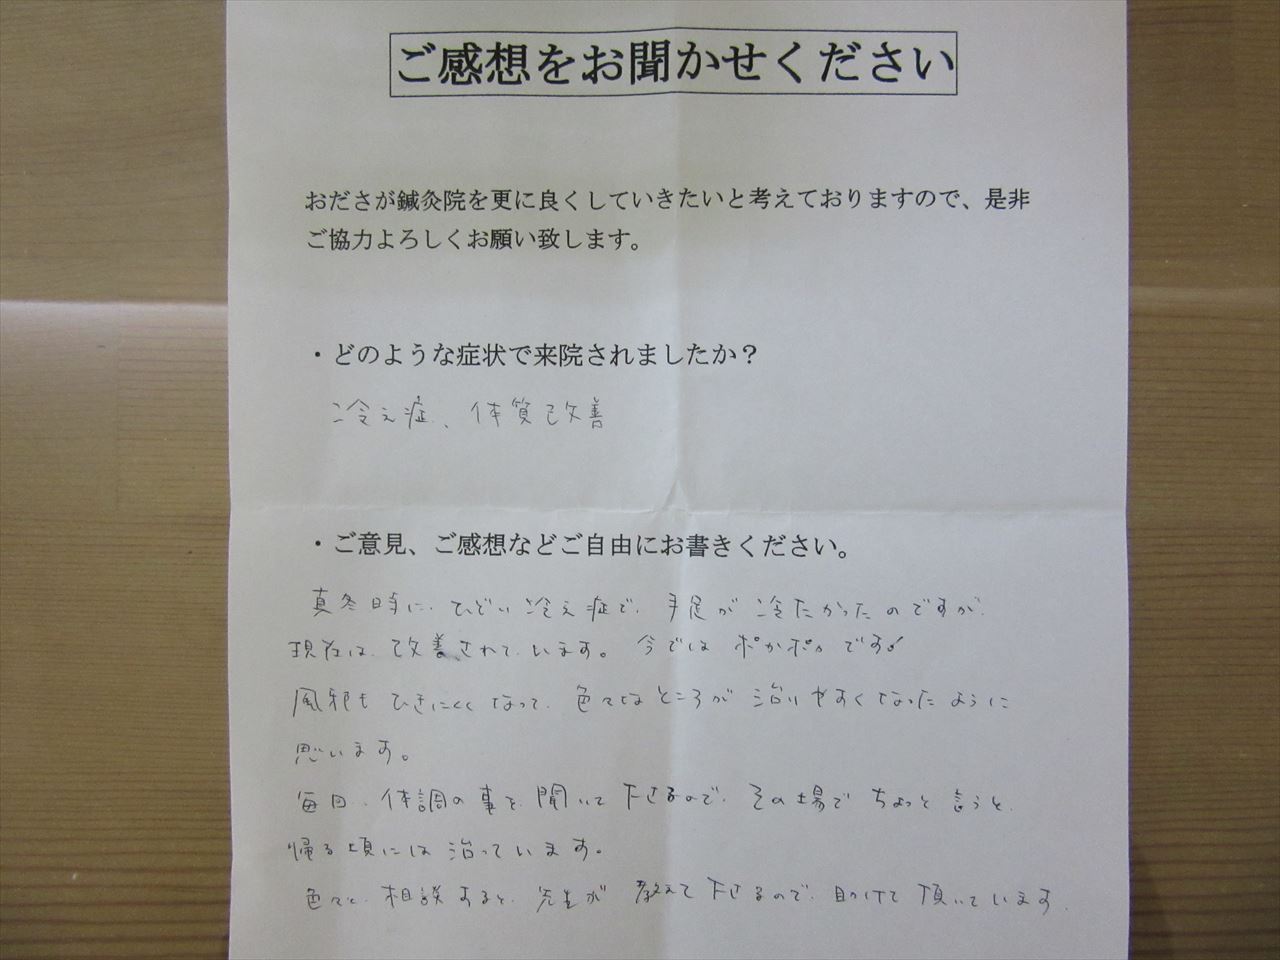 ご感想をお聞かせください
おださが鍼灸院を更に良くしていきたいと考えておりますので、是非
ご協力よろしくお願い致します。
・どのような症状で来院されましたか？
冷え症、体質改善
・ご意見、ご感想などご自由にお書きください。
真冬時に、ひどい冷え症で、手足が冷たかったのですが、
現在は、改善されています。今ではポカポカです!
風邪もひきにくくなって、色々なところが治りやすくなったように
思います。
毎回、体調の事を聞いて下さるので、その場でちょっと言うと、
帰る頃には治っています。
色々と、相談すると、先生が教えて下さるので、助けて頂いています。